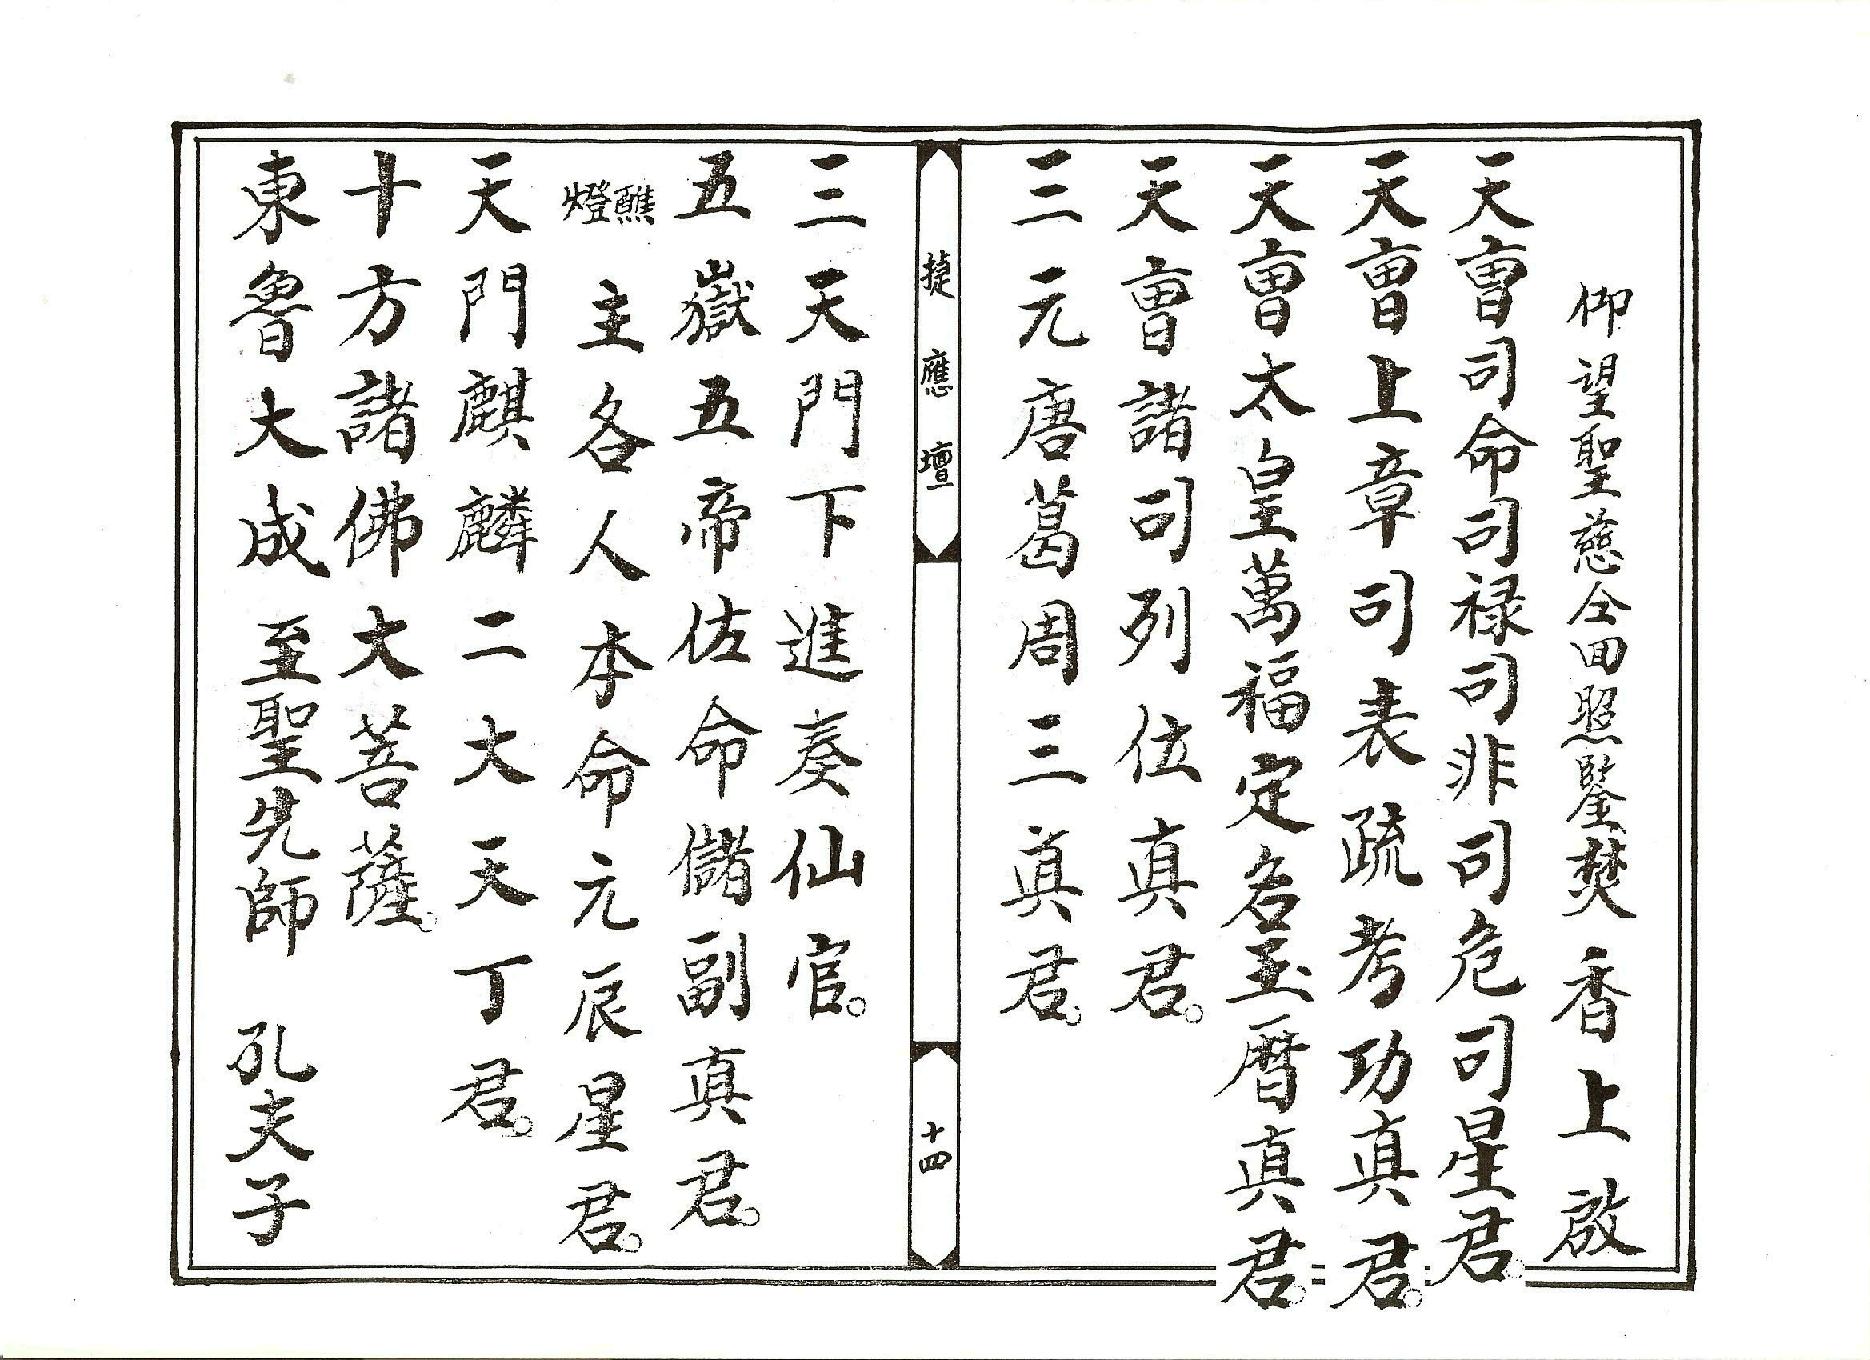 仰望聖慈仝回照鑒焚香上啟
天曹司命司禄司非司危司星君。
天曹上章司表疏考功真君。
天曹太皇萬福定名玉曆真君。
天曹諸司列位真君。
三元唐葛周三真君。
捷應壇
十四
三天門下進奏仙官。
五嶽五帝佐命儲副真君。
醮
燈
主各人本命元辰星君。
天門麒麟二大天丁君。
十方諸佛大菩薩。
東魯大成至聖先師 孔夫子